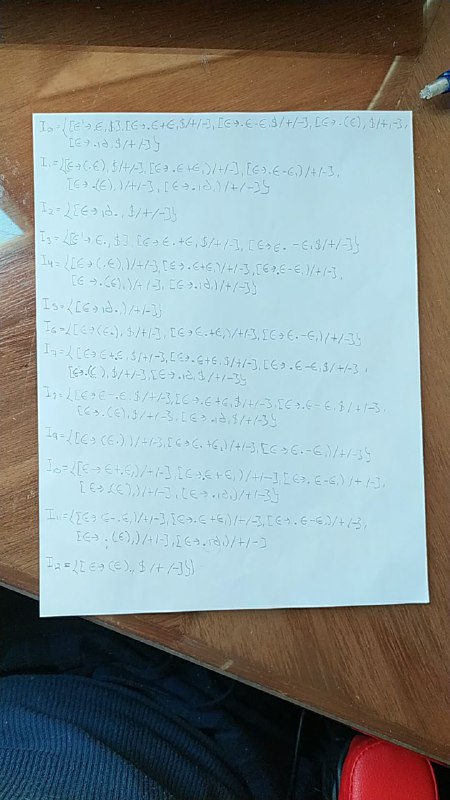 I0={[E'→.E,$],[E→.E+E,$/+/-],[E→.E-E,$/+/-],[E→.(E),$/+,-],
[E→.id,$/+/-]}
I1={[E→(.E),$/+/-],[E→.E+E,)/+/-],[E→.E-E,)/+/-],
[E→.(E),)/+/-],[E→.id,)/+/-]}
I2={[E→id.,$/+/-]}
I3={[E'→E.,$],[E→E.+E,$/+/-],[E→E.-E,$/+/-]}
I4={[E→(.E),)/+/-],[E→.E+E,)/+/-],[E→.E-E,)/+/-],
[E→.(E),)/+/-],[E→.id,)/+/-]}
I5={[E→id.,)/+/-]}
I6={[E→(E.),$/+/-],[E→E.+E,)/+/-],[E→E.-E,)/+/-]}
I7={[E→E+.E,$/+/-],[E→.E+E,$/+/-],[E→.E-E,$/+/-],
[E→.(E),$/+/-],[E→.id,$/+/-]}
[E→E-.E,$/+/-],[E→.E+E,$/+/-],[E→.E-E,$/+/-],
[E→.(E),$/+/-],[E→.id,$/+/-]}
I9={[E→(E.),)/+/-],[E→E.+E,)/+/-],[E→E.-E,)/+/-]}
I10={[E→E+.E,)/+/-],[E→.E+E,)/+/-],[E→.E-E,)/+/-],
[E→.(E),)/+/-],[E→.id,)/+/-]}
I11={[E→E-.E,)/+/-],[E→.E+E,)/+/-],[E→.E-E,)/+/-],
[E→.(E),)/+/-],[E→.id,)/+/-]
I12={[E→(E).,$/+/-]}